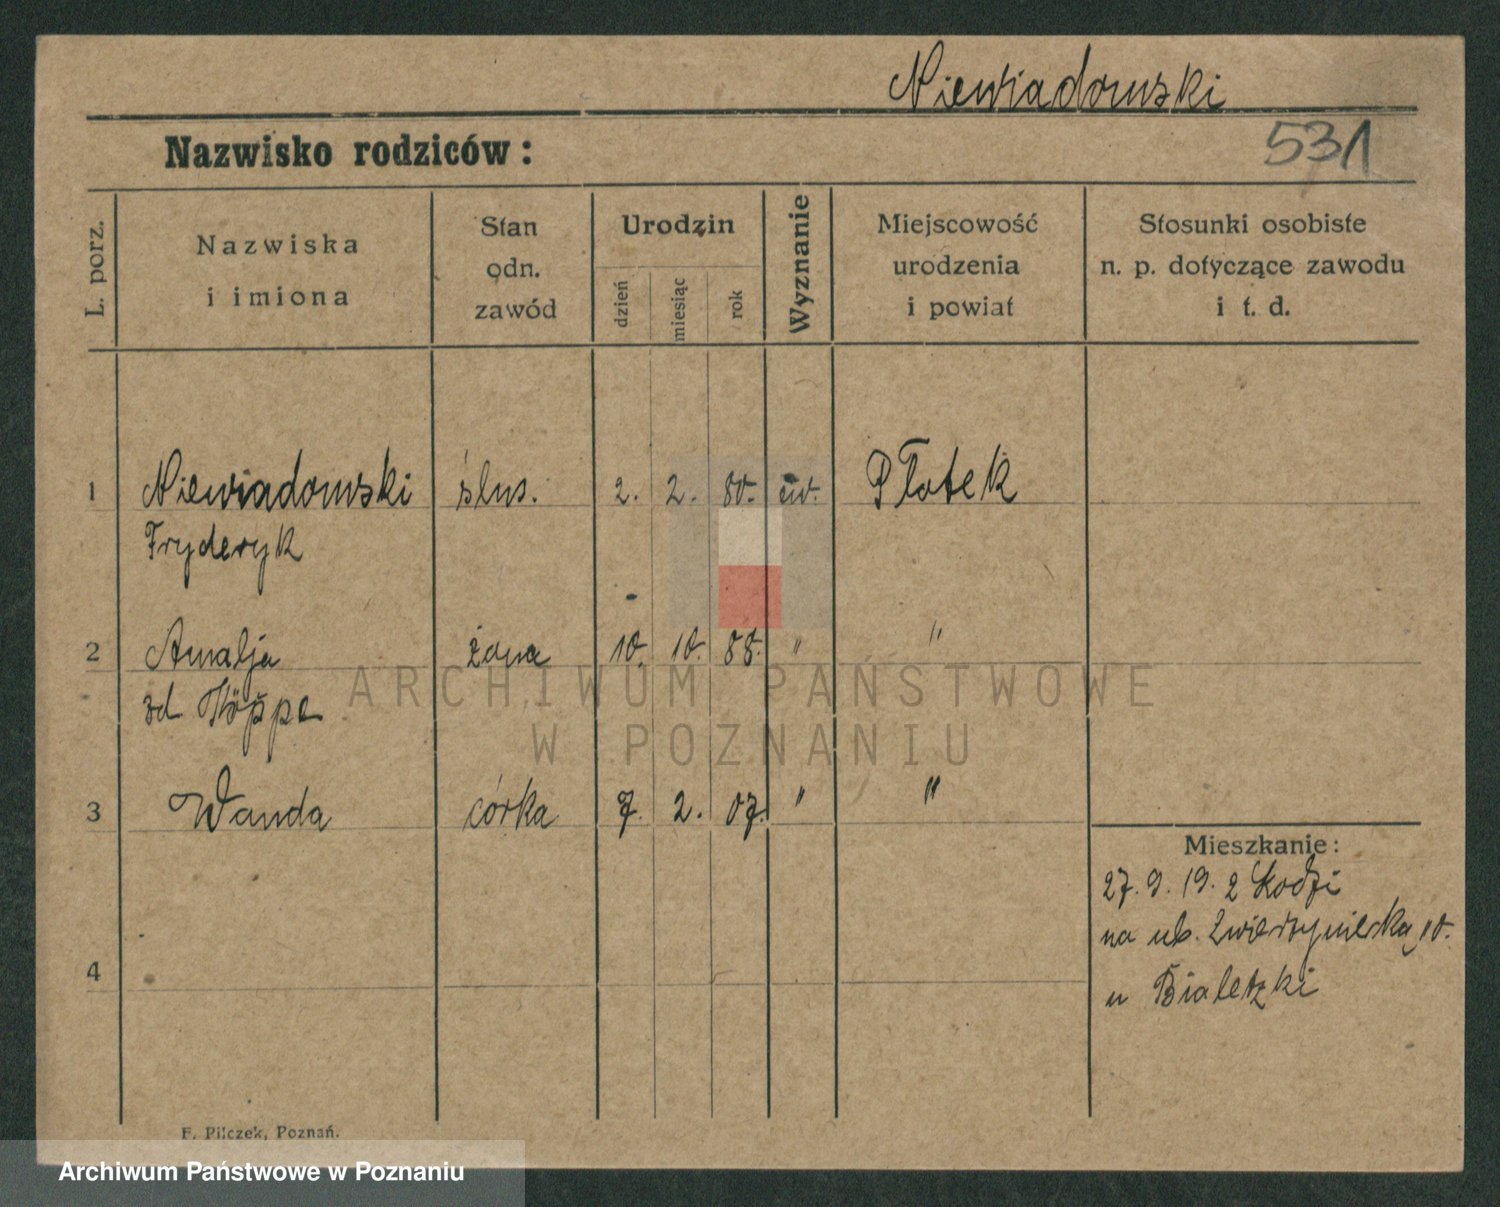 Niewiadomski
531
Nazwisko rodziców :
L. porz.
Nazwiska
i imiona
Stan
odn.
zawód
Urodzin
dzień
miesiąc
rok
Wyznanie
Miejscowość
urodzenia
i powiat
Stosunki osobiste
n. p. dotyczące zawodu
i t. d.
1 Niewiadomski ślus. 2. 2. 80. ew. Płotek
Fryderyk
2 Amalja żona 10. 10. 88. " "
zd
3 Wanda córka 7. 2. 07. " "
4
Mieszkanie :
27. 9. 19. z Łodzi
na ul. Zwierzyniecka 10.
u
F. Pilczek, Poznań.
ARCHIWUM PAŃSTWOWE
W POZNANIU
Archiwum Państwowe w Poznaniu